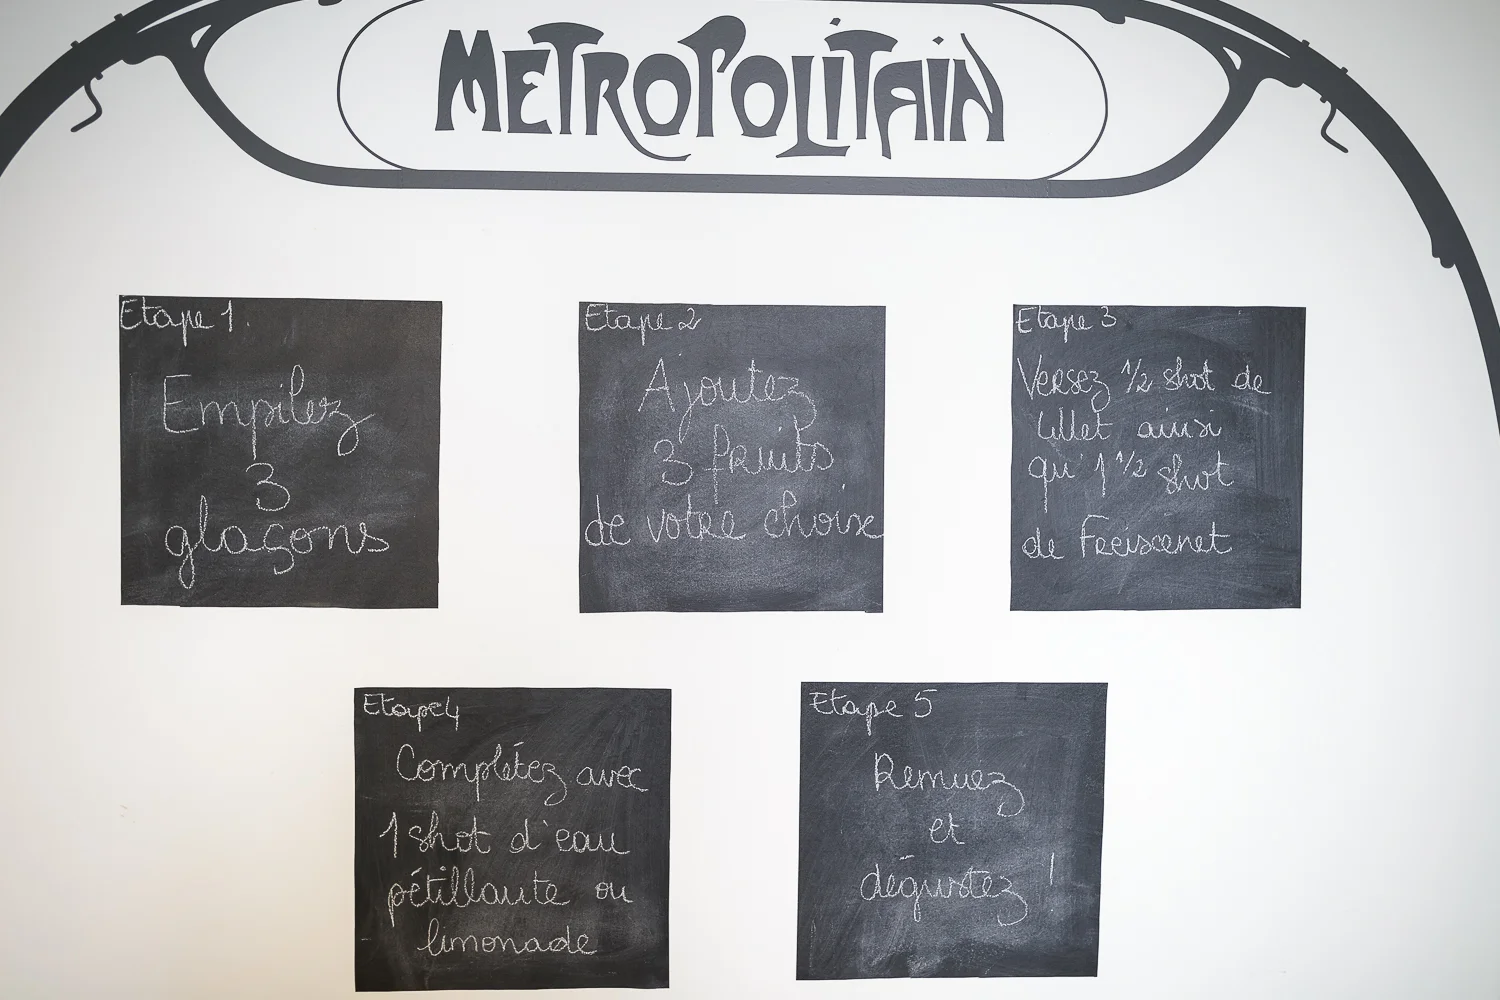 METROPOLITAIN
Etape 1.
Empilez
3
glaçons
Etape 2
Ajoutez
3 fruits
de votre choix
Etape 3
Versez 1/2 shot de
Lillet ainsi
qu'1 1/2 shot
de Freixenet
Etape 4
Complétez avec
1 shot d'eau
pétillante ou
limonade
Etape 5
Remuez
et
dégustez !